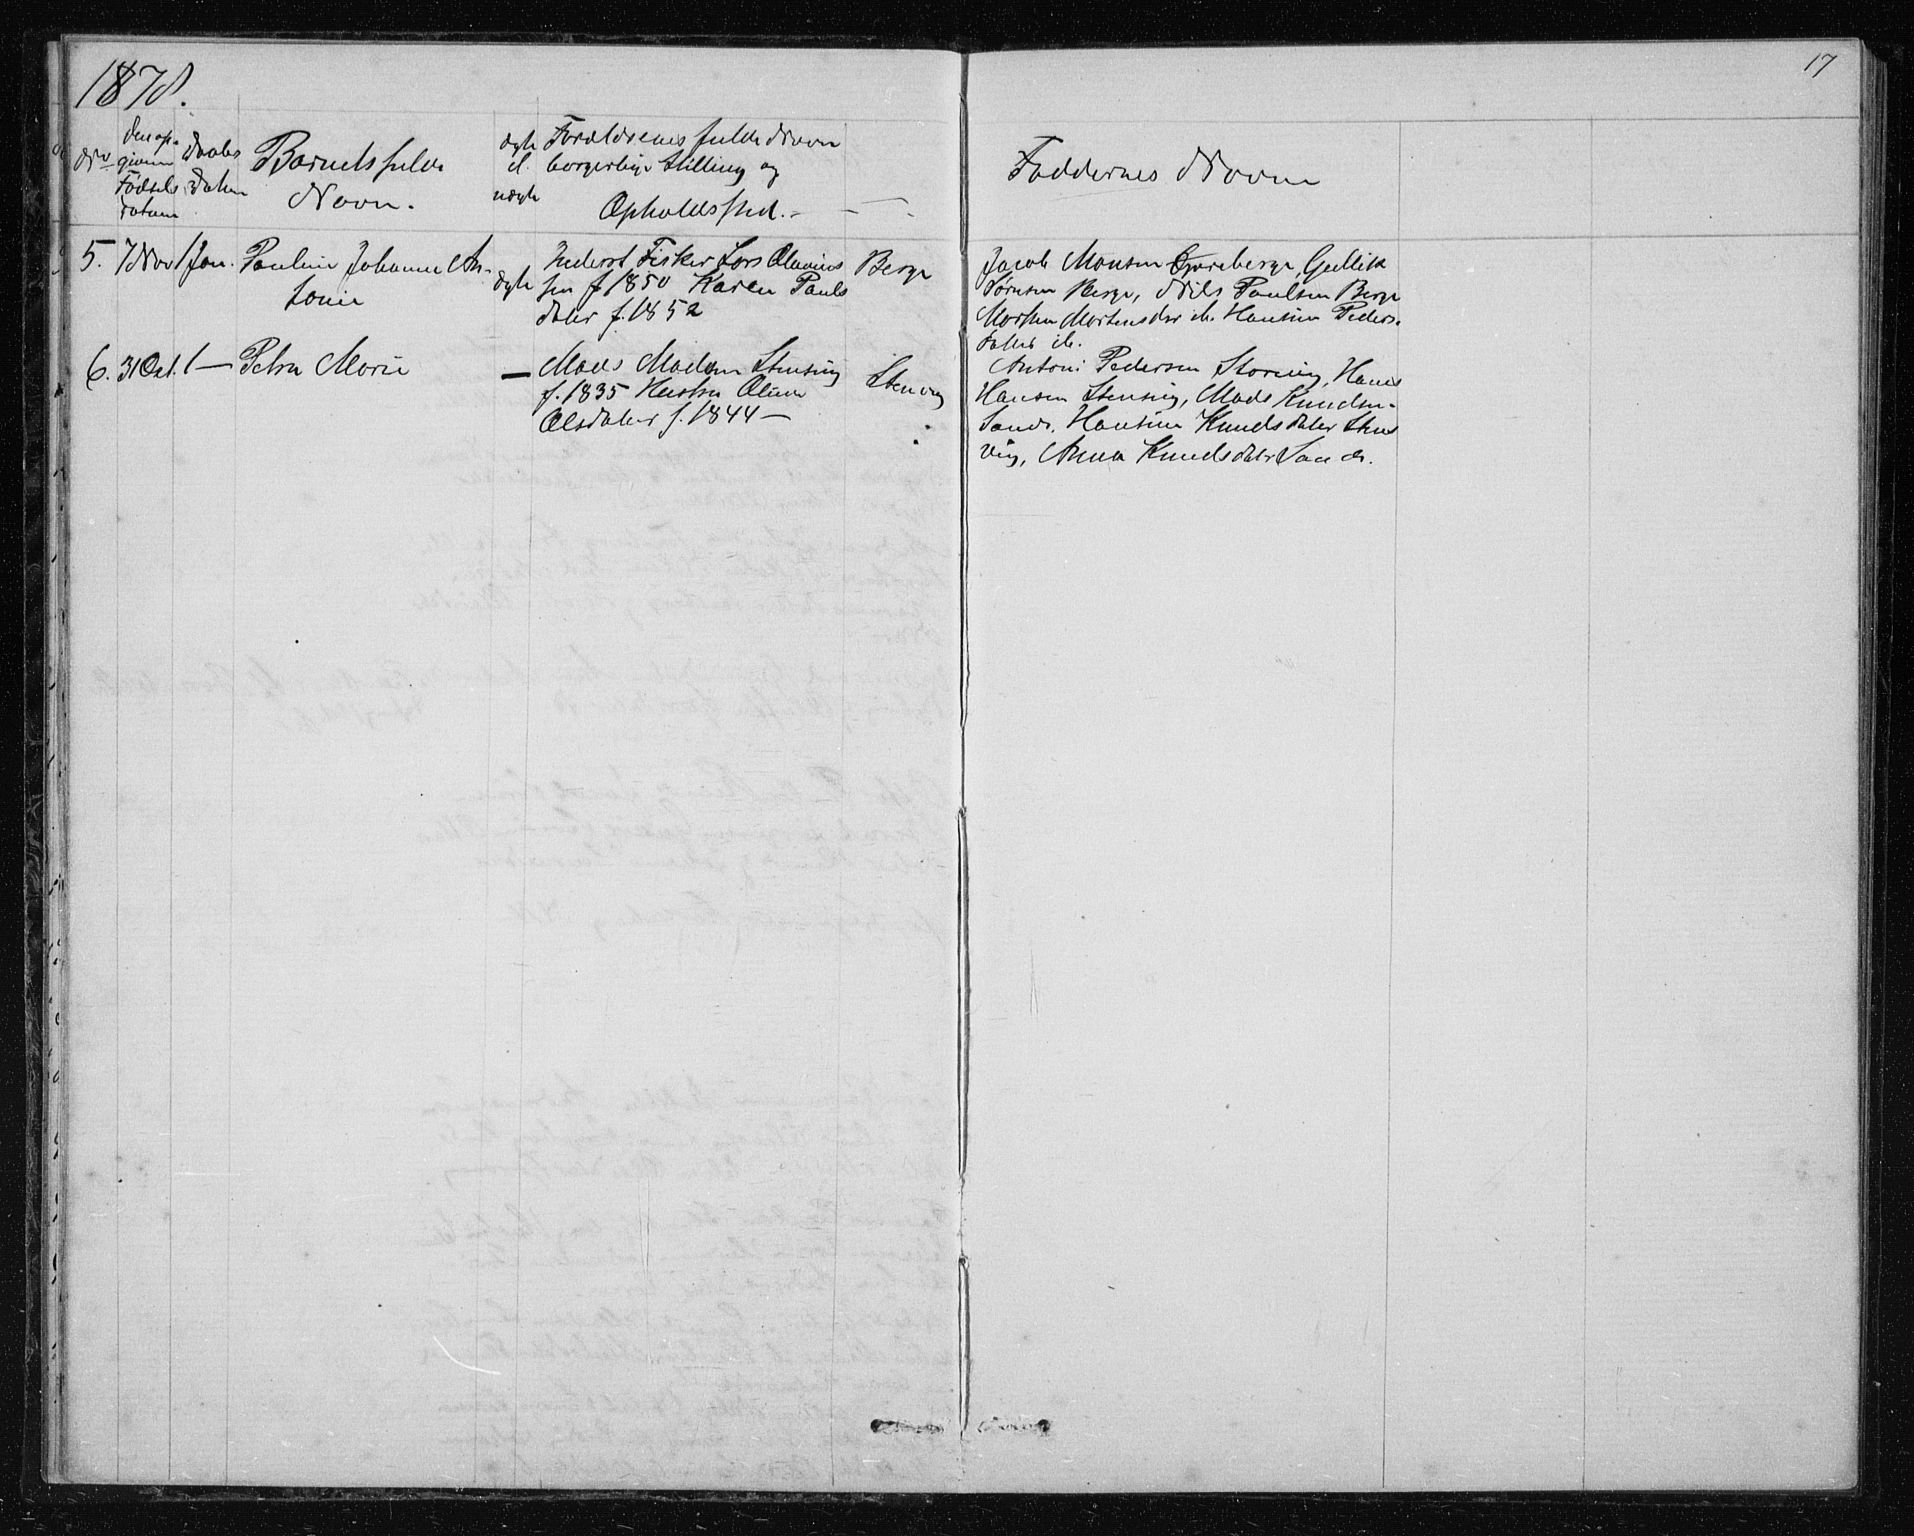 1878.
17
No
Den op-
givne
Fødsels
datum
Daabs
Datum
Barnets fulde
Navn.
ægte
el.
uægte
Forældrenes fulde Navn
borgerlige Stilling og
Opholdssted.
Faddernes Navn
5. 7 Nov 1 Jan. Pauline Johanne An-
tonie
ægte
Inderst Fisker Lars Olavius
sen f 1850 Karen Pauls
dater f. 1852
Berge
Jacob Monsen Berge, Gullik
Sørensen Berge, Nils Paulsen Berge
Mortensdat ib. Hansine Peders.
datter ib.
6. 31 Oct. 1 — Petra Marie
—
Mads Madsen Stensvig
f. 1835 Hustru Oline
Olsdater f. 1844 —
Stensvig
Antoni Pedersen Storvig, Hans
Hansen Stensvig, Mads Knudsen
Sande, Hansine Knudsdater Stens
vig, Anna Knudsdater Sande.